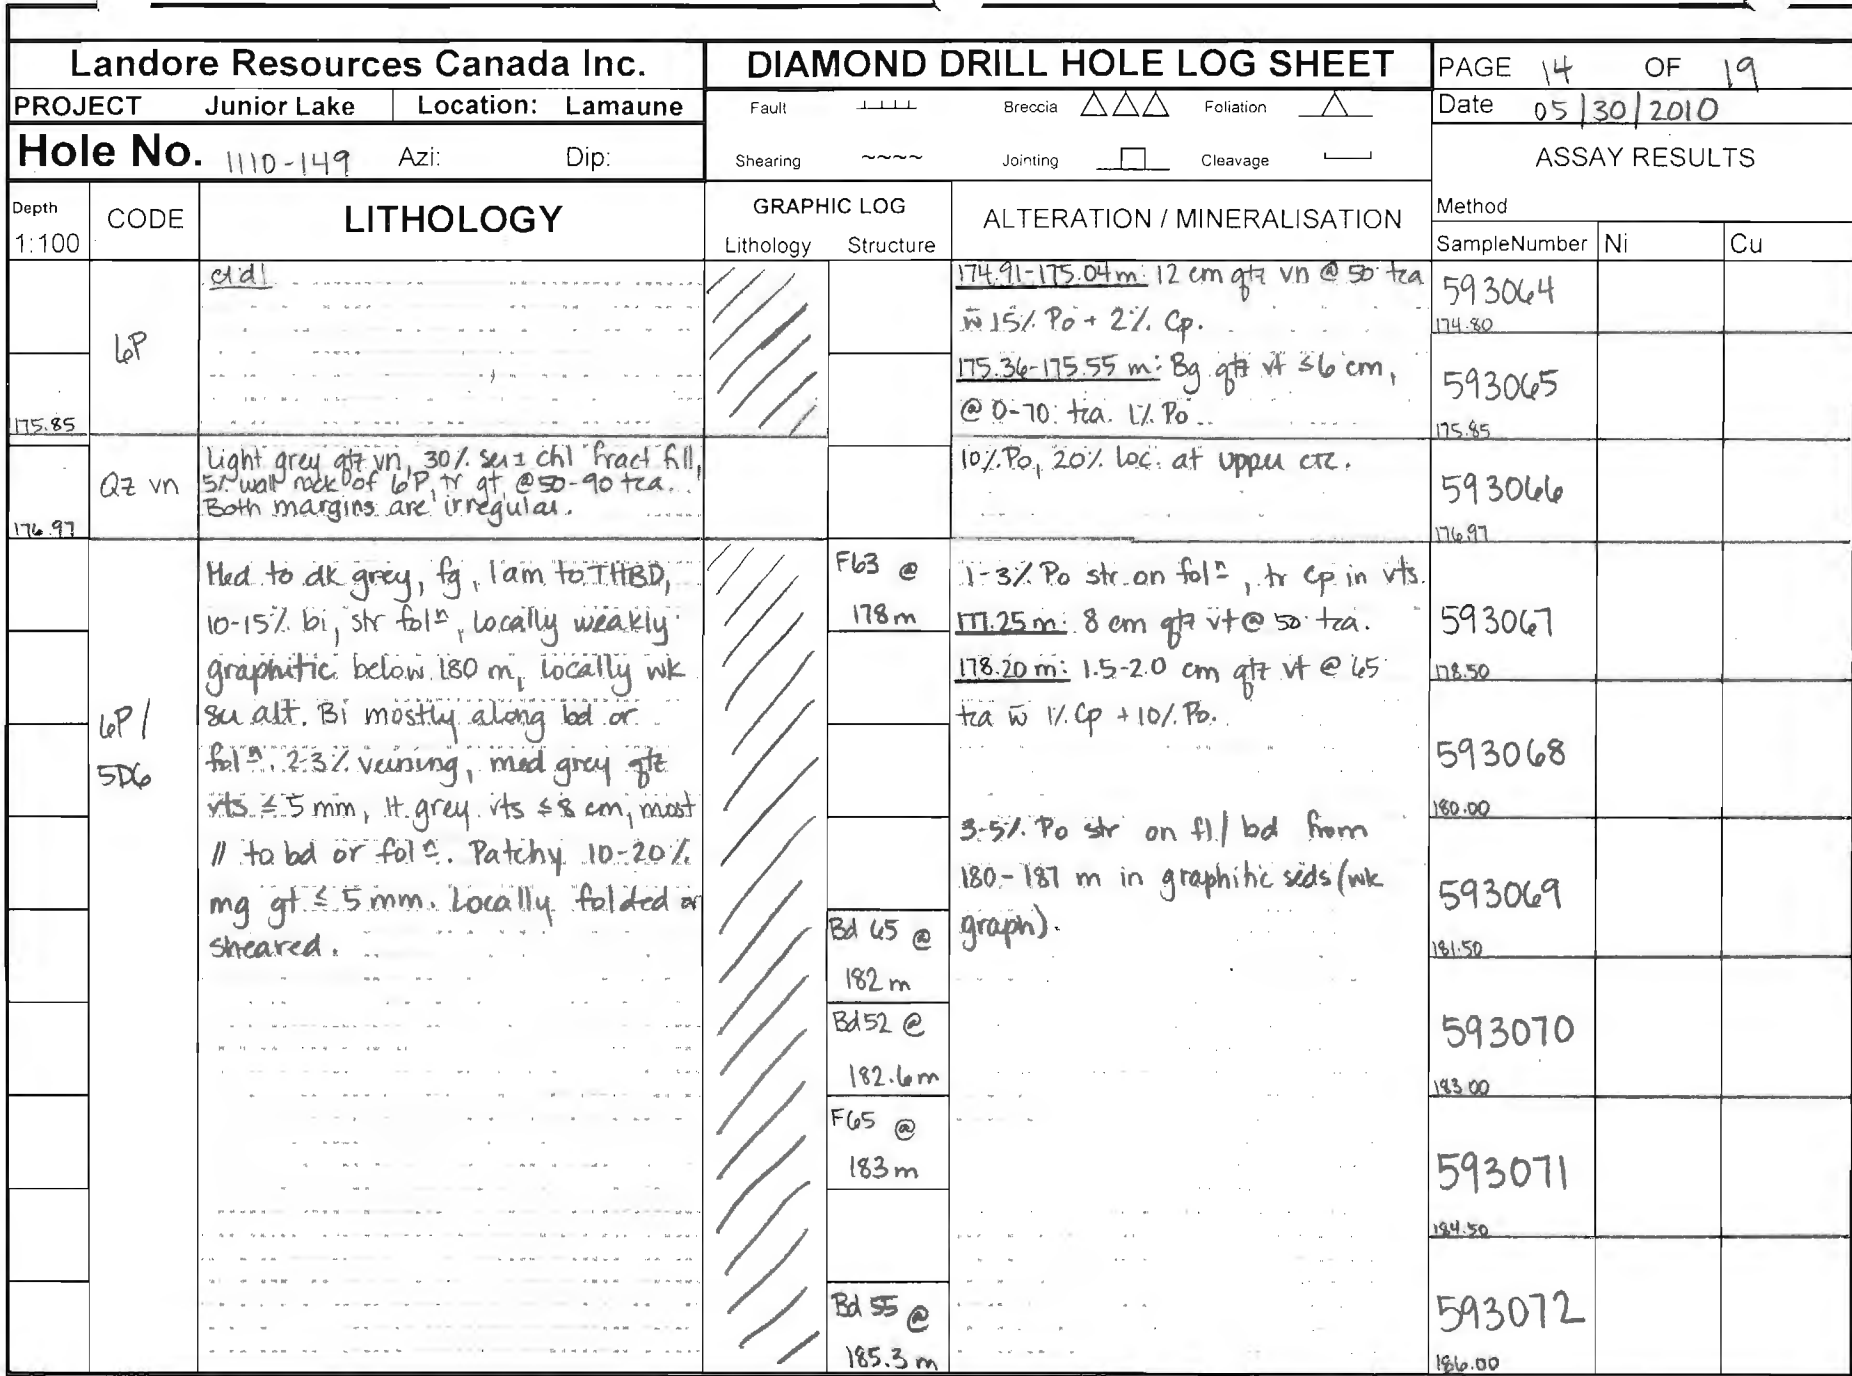 Landore Resources Canada Inc.
DIAMOND DRILL HOLE LOG SHEET
PAGE 14 OF 19
PROJECT Junior Lake Location: Lamaune
Fault Breccia Foliation
Date 05/30/2010
Hole No. 1110-149 Azi: Dip:
Shearing Jointing Cleavage
ASSAY RESULTS
Depth
1:100
CODE
LITHOLOGY
GRAPHIC LOG
Lithology Structure
ALTERATION / MINERALISATION
Method
SampleNumber Ni Cu
6P
175.85
ct'd
174.91-175.04m: 12 cm qtz vn @ 50 tca
w 15% Po + 2% Cp.
175.36-175.55 m: Bg qtz vt ≤6 cm,
@ 0-70 tca. 1% Po
593064
174.80
593065
175.85
Qz vn
176.97
Light grey qtz vn, 30% ser ± chl fract fill,
5% wall rock of 6P, tr gt, @ 50-90 tca.
Both margins are irregular.
10% Po, 20% loc. at upper ctc.
593066
176.97
6P/
5D6
Med to dk grey, fg, lam to THBD,
10-15% bi, str folⁿ, locally weakly
graphitic below 180 m, locally wk
su alt. Bi mostly along bd or
folⁿ. 2-3% veining, med grey qtz
vts ≤ 5 mm, lt grey vts ≤ 8 cm, most
// to bd or folⁿ. Patchy 10-20%
mg gt ≤ 5 mm. Locally folded or
sheared.
F63 @
178 m
Bd 65 @
182 m
Bd 52 @
182.6 m
F65 @
183 m
Bd 55 @
185.3 m
1-3% Po str on folⁿ, tr Cp in vts.
177.25 m: 8 cm qtz vt @ 50 tca.
178.20 m: 1.5-2.0 cm qtz vt @ 65
tca w 1% Cp + 10% Po.
3-5% Po str on fl/bd from
180-187 m in graphitic seds (wk
graph).
593067
178.50
593068
180.00
593069
181.50
593070
183.00
593071
184.50
593072
186.00